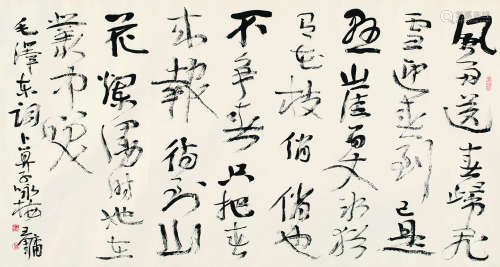 風雨送春歸飛
雪迎春到已是
懸崖百丈冰猶
有花枝俏俏也
不爭春只把春
來報待到山
花爛漫時她在
叢中笑
毛澤東詞卜算子咏梅 王鏞